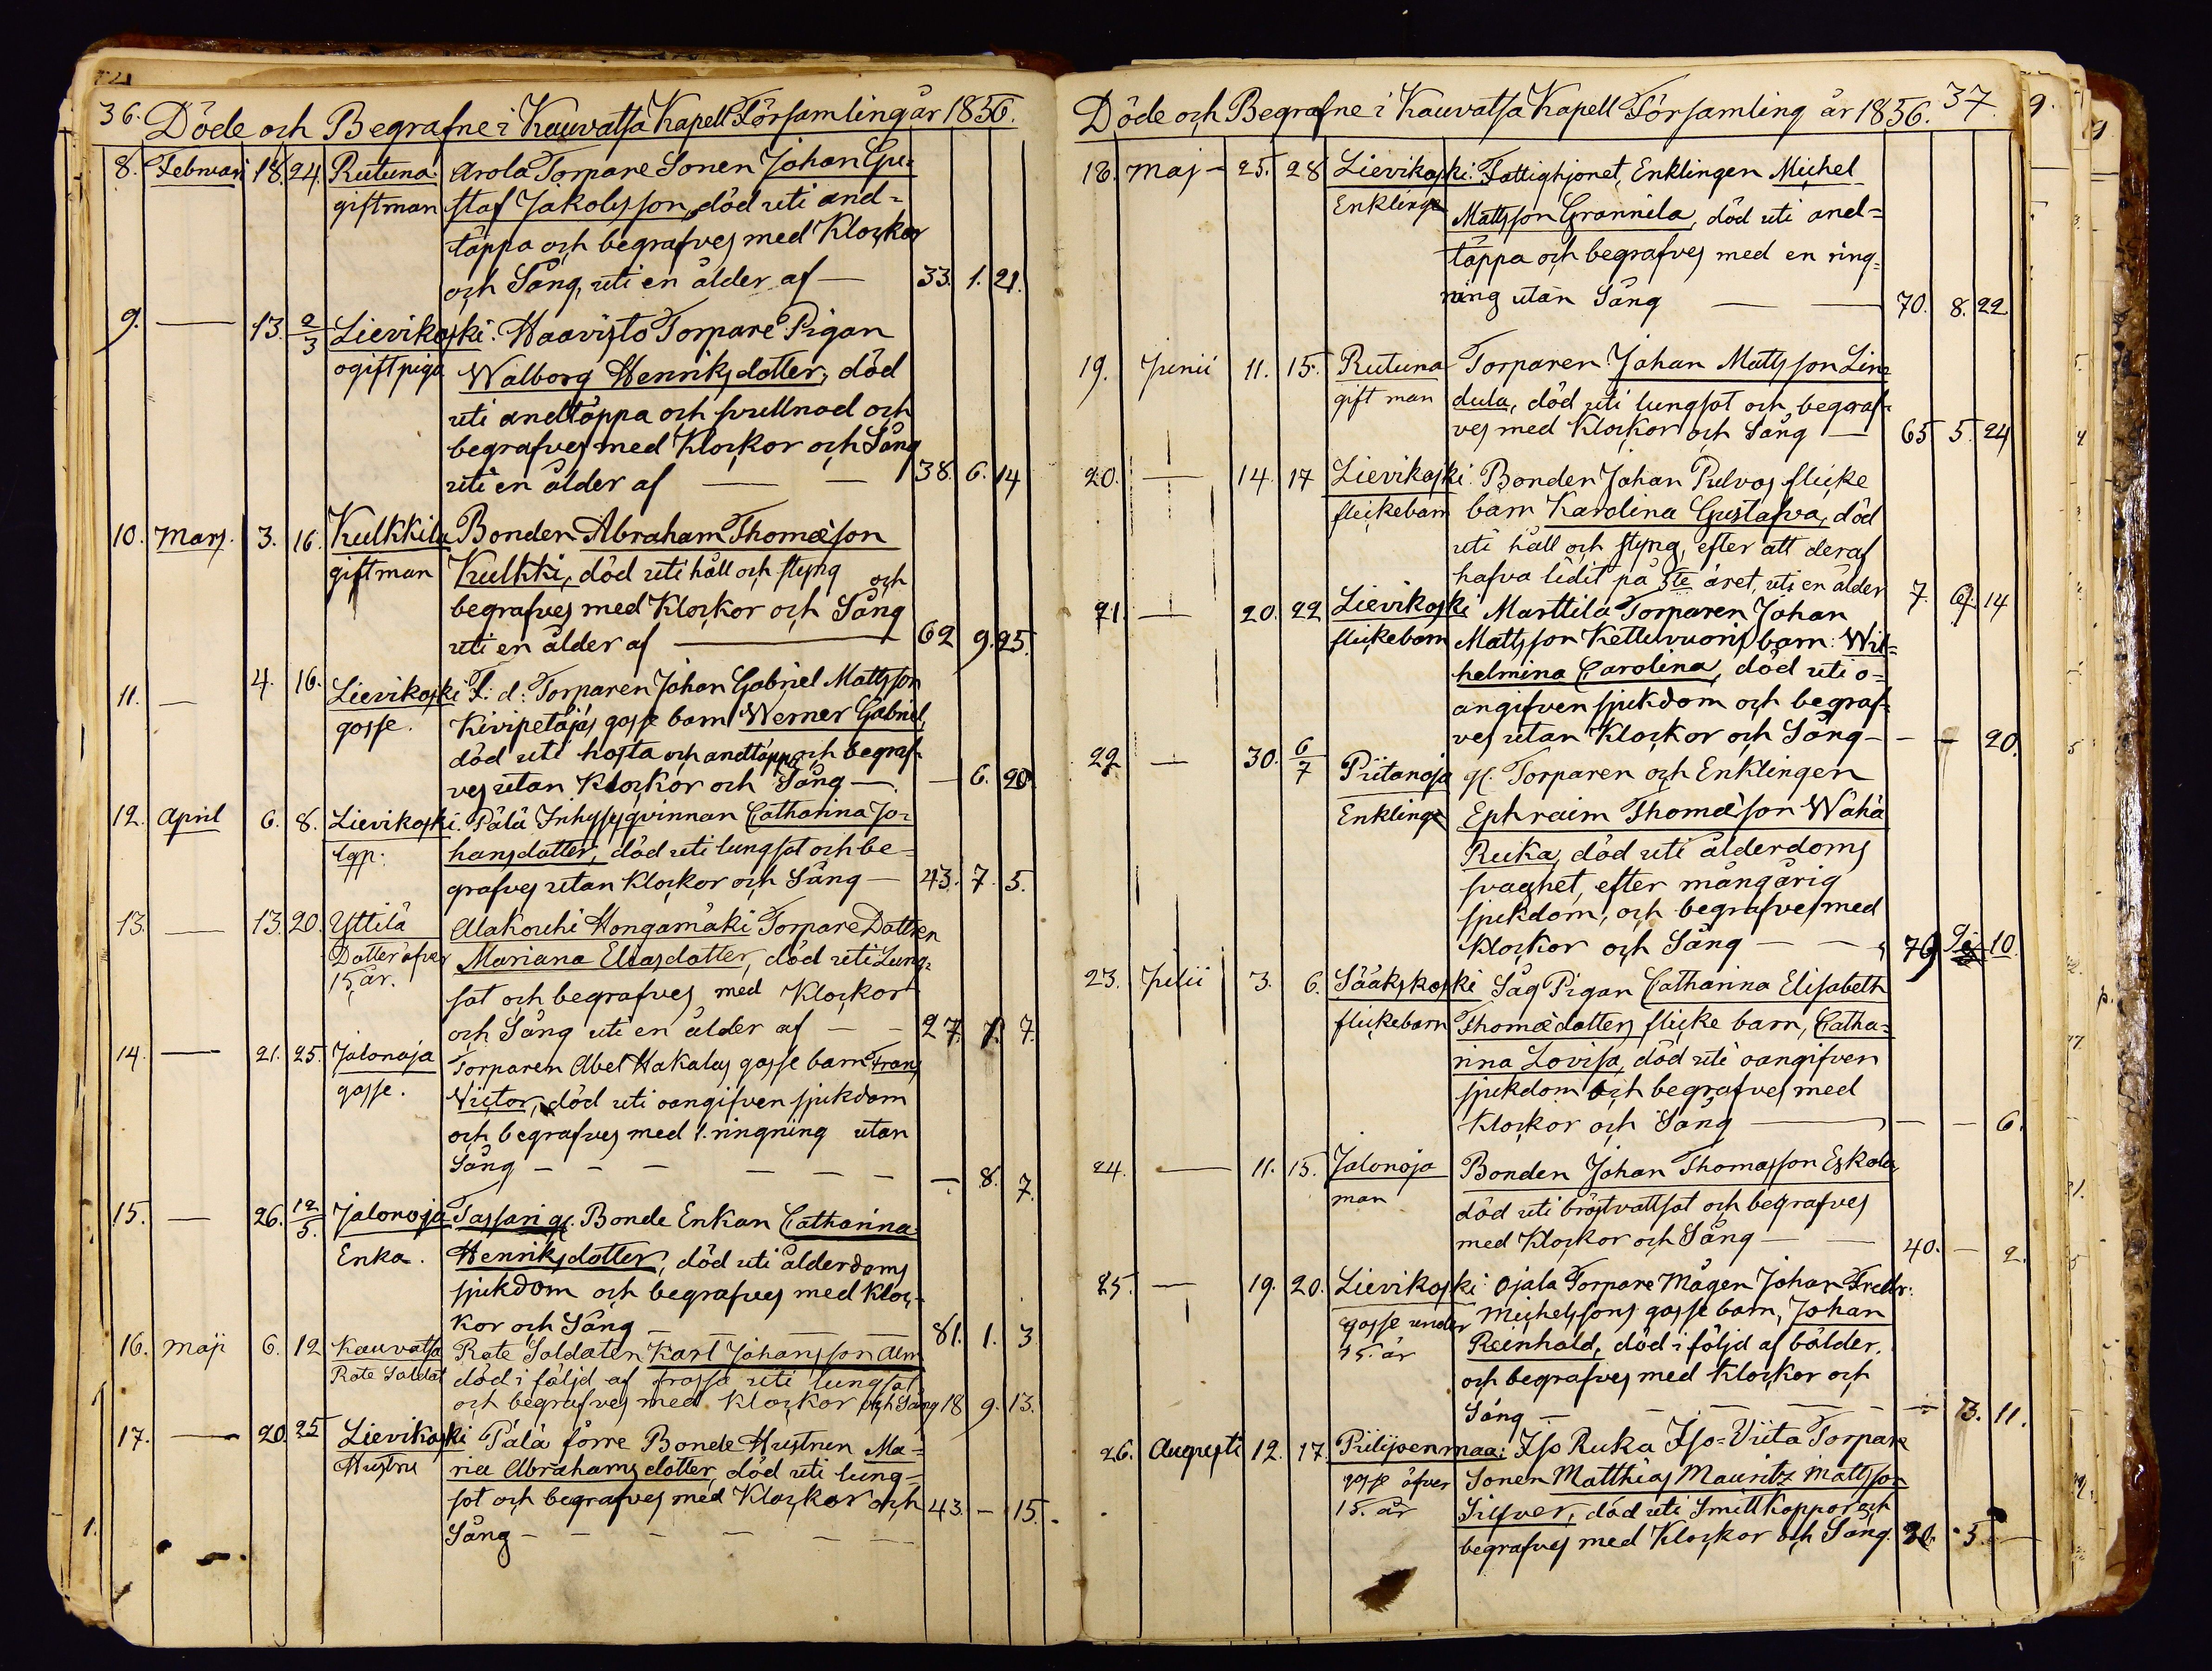 36. Döde och Begrafne i Kauvatsa Kapell Församling år 1856.
8. Februari 18. 24. Rutuna Arola Torpare Sonen Johan Gu=
giftman staf Jakobsson, död uti and=
täppa och begrafves med Klockor
och Sång, uti en ålder af — 33. 1. 21.
9. — 13. 2/3 Lievikoski: Haavisto Torpare Pigan
ogift piga Walborg Henriksdotter, död
uti andtäppa och svullnad och
begrafves med Klockor och Sång
uti en ålder af — — 38. 6. 14
10. Mars. 3. 16. Kulkkila Bonden Abraham Thomæson
giftman Kulkki, död uti håll och styng och
begrafves med Klockor och Sång
uti en ålder af — 62 9. 25.
11. — 4. 16. Lievikoski F: d: Torparen Johan Gabriel Mattsson
gosse. Kivipetäjäs gosse barn Werner Gabriel,
död uti hosta och andtäppa och begraf=
ves utan Klockor och Sång — — 6. 20
12. April 6. 8. Lievikoski. Pälä Inhysesqvinnan Catharina Jo=
hansdotter, död uti lungsot och be=
grafves utan Klockor och Sång — 43. 7. 5.
13. — 13. 20. Yttilä Alakouhi Hongamäki Torpare Dottren
Dotter öfver Mariana Eliasdotter, död uti Lung=
15, år. sot och begrafves med Klockor
och Sång uti en ålder af — — 27. 7. 7.
14. — 21. 25. Jalonoja Torparen Abel Hakalas gosse barn Frans
gosse. Victor, död uti oangifven sjukdom
och begrafves med 1. ringning utan
Sång — — — — — — — 8. 7.
15. — 26. 12/5. Jalonoja Tassari gl. Bonde Enkan Catharina
Enka. Henriksdotter, död uti ålderdoms
sjukdom och begrafves med Kloc=
kor och Sång — — — — 81. 1. 3
16. Maji 6. 12 Kauvatsa Rote Soldaten Karl Johansson Alm
Rote Soldat död i följd af frossa uti lungsot
och begrafves med Klockor och Sång 18 9. 13.
17. — 20. 25 Lievikoski Pälä förre Bonde Hustrun Ma=
Hustru ria Abrahamsdotter, död uti lung=
sot och begrafves med Klockor och 43. — 15.
Sång — — — — — —
Döde och Begrafne i Kauvatsa Kapell Församling år 1856. 37
18. Maj — 25. 28 Lievikoski: Fattighjonet, Enklingen Michel
Enkling Mattsson Grannila, död uti and=
täppa och begrafves med en ring=
ning utan Sång — — 70. 8. 22
19. Junii 11. 15. Rutuna Torparen Johan Mattsson Lin=
gift man dula, död uti lungsot och begraf=
ves med Klockor och Sång — 65 5. 24
20. — 14. 17 Lievikoski. Bonden Johan Pulvas flicke
flickebarn barn Karolina Gustafva, död
uti håll och styng, efter att deraf
hafva lidit på 3te året, uti en ålder 7. 6. 14
21. — 20. 22 Lievikoski Marttila Torparen Johan
flickebarn Mattsson Kettuvuoris barn: Wil=
helmina Carolina, död uti o=
angifven sjukdom och begraf=
ves utan Klockor och Sång — — — 20.
22 — 30. 6/7 Piitanoja gl. Torparen och Enklingen
Enkling Ephraim Thomæson Wähä
Ruka, död uti ålderdoms
svaghet, efter mångårig
sjukdom, och begrafves med
Klockor och Sång — — 79 9 10.
23. Julii 3. 6. Sääkskoski Såg Pigan Catharina Elisabeth
flickebarn Thomædotters flicke barn, Catha=
rina Lovisa, död uti oangifven
sjukdom och begrafves med
Klockor och Sång — — — 6.
24. — 11. 15. Jalonoja Bonden Johan Thomasson Eskola,
man död uti bröstvattsot och begrafves
med Klockor och Sång — — 40. — 2.
25. — 19. 20. Lievikoski: Ojala Torpare Mågen Johan Fredr.
gosse under Michelssons gosse barn, Johan
15. år Reinhold, död i följd af bölder.
och begrafves med Klockor och
Sång — — — — — — 3. 11.
26. Augusti 12. 17. Piilijoenmaa: Iso Ruka Iso=Viita Torpare
gosse öfver Sonen Matthias Mauritz Mattsson
15. år Silfver, död uti Smittkoppor och
begrafves med Klockor och Sång. 20. 5. —